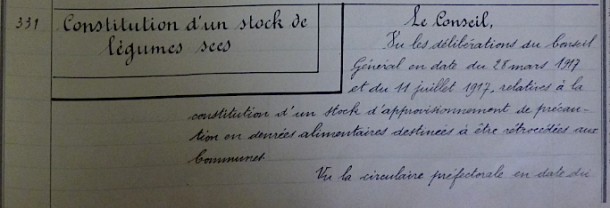 331
Constitution d'un stock de
légumes secs
Le Conseil,
Vu les délibérations du Conseil
Général en date du 28 mars 1917
et du 11 juillet 1917, relatives à la
constitution d'un stock d'approvisionnement de précau-
tion en denrées alimentaires destinées à être rétrocédées aux
Communes
Vu la circulaire préfectorale en date du